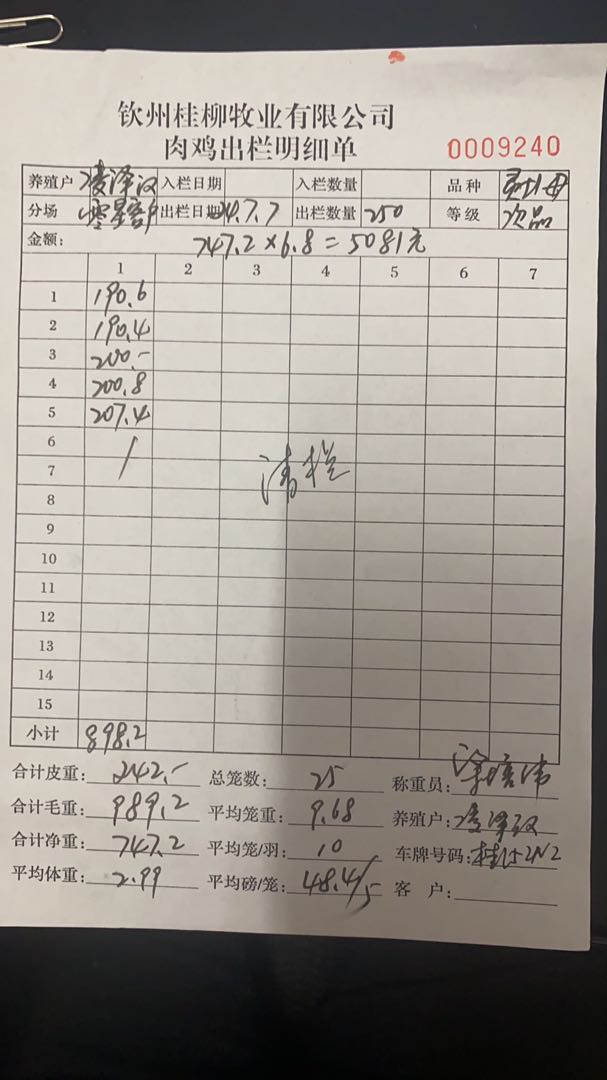 钦州桂柳牧业有限公司
肉鸡出栏明细单
0009240
养殖户 凌泽汉 入栏日期 入栏数量 品种
分场 零星客户 出栏日期 24.7.7 出栏数量 250 等级 次品
金额: 747.2×6.8=5081元
1 2 3 4 5 6 7
1 190.6
2 190.4
3 200.-
4 200.8
5 207.4
6
7 清栏
8
9
10
11
12
13
14
15
小计 898.2
合计皮重: 242.- 总笼数: 25 称重员:
合计毛重: 989.2 平均笼重: 9.68 养殖户: 凌泽汉
合计净重: 747.2 平均笼/羽: 10 车牌号码:
平均体重: 2.99 平均磅/笼: 48.4/5 客 户: